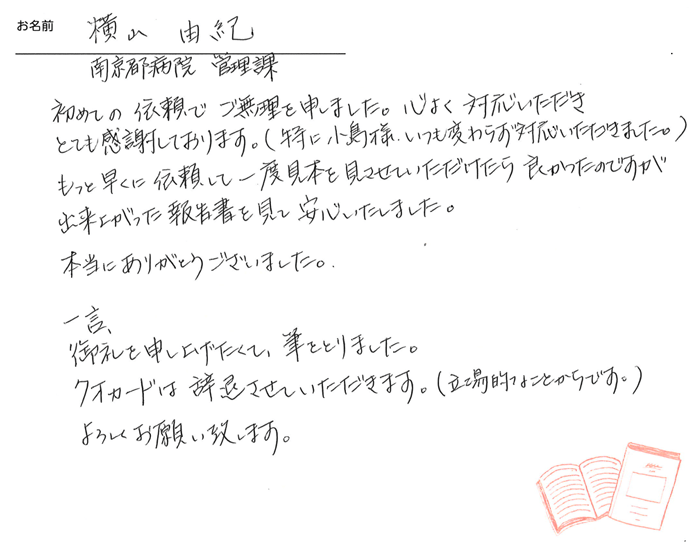 お名前 横山 由紀
南京都病院 管理課
初めての依頼でご無理を申しました。心よく対応いただき
とても感謝しております。(特に小島様、いつも変わらず対応いただきました。)
もっと早くに依頼して一度見本を見させていただけたら良かったのですが
出来上がった報告書を見て安心いたしました。
本当にありがとうございました。
一言、
御礼を申し上げたくて、筆をとりました。
クオカードは辞退させていただきます。(立場的なことからです。)
よろしくお願い致します。